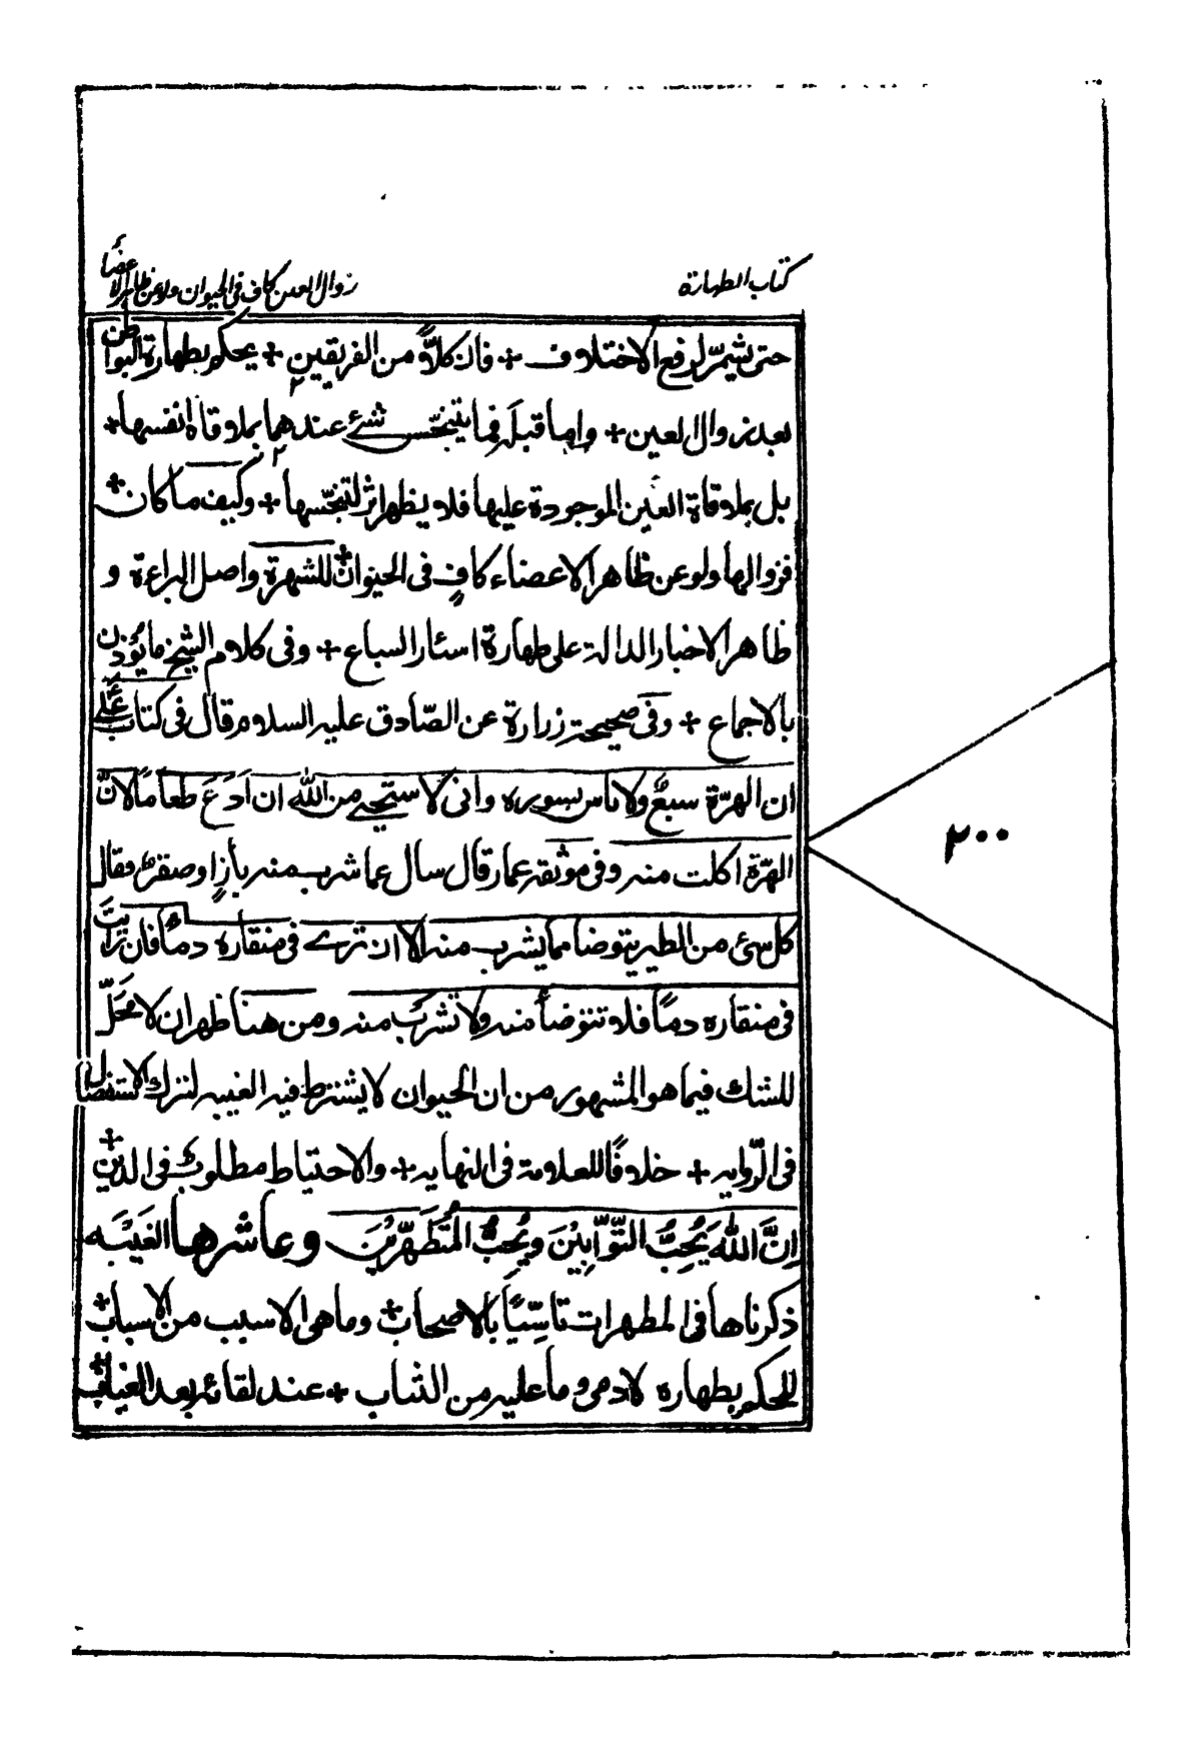 كتاب الطهارة
زوال العين كاف فى الحيوان ولو عن ظاهر الاعضاء
حتى يثمر لرفع الاختلاف + فان كلاًّ من الفريقين + يحكم بطهارة البواطن
بعد زوال العين + واما قبله فما يتنجّس شئ عندهما بملاقاة انفسها +
بل بملاقاة العين الموجودة عليها فلا يظهر اثر لتنجّسها + وكيف ما كان +
فزوالها ولو عن ظاهر الاعضاء كافٍ فى الحيوان + للشهرة واصل البراءة و
ظاهر الاخبار الدالة على طهارة اسئار السباع + وفى كلام الشيخ ما يؤذن
بالاجماع + وفى صحيحة زرارة عن الصّادق عليه السلام قال فى كتاب علىّ
ان الهرّة سبعٌ ولا باس بسوره وانى لاستحيى من الله ان اَدَعَ طعامًا لانّ
الهرّة اكلت منه وفى موثقة عمار قال سال عما شرب منه بازٍ او صقرٌ فقال
كل شئ من الطير يتوضأ مما يشرب منه الا ان ترى فى منقاره دمًا فان رايتَ
فى منقاره دمًا فلا تتوضأ منه ولا تشرب منه ومن هنا ظهر ان لا محَلّ
للشك فيما هو المشهور من ان الحيوان لا يشترط فيه الغيبه لترك الاستفصال
فى الرّوايه + خلافًا للعلامة فى النهايه + والاحتياط مطلوب فى الدين +
اِنَّ اللهَ يُحِبُّ التَّوّابِيْنَ وَيُحِبُّ الْمُتَطَهِّرِيْنَ وعاشرها الغَيْبَه
ذكرناها فى المطهرات تاسّيًا بالاصحاب + وما هى الا سبب من الاسباب +
للحكم بطهاره الادمى وما عليه من الثياب + عند لقائه بعد الغياب +
٢٠٠